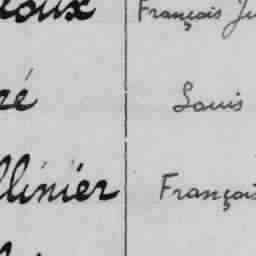 ioux François Ju
ré Louis
llinier François